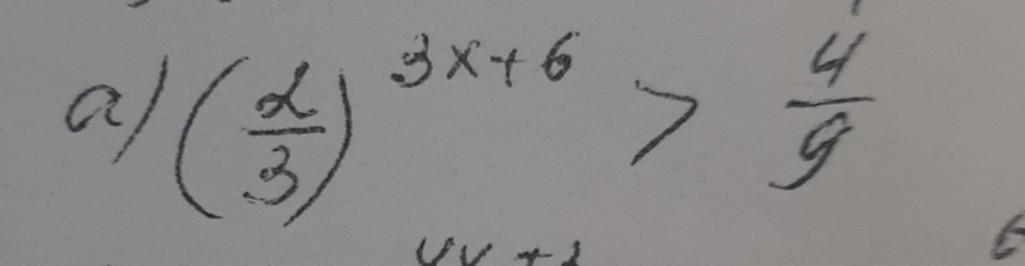 a) (2/3)^{3x+6} > 4/9